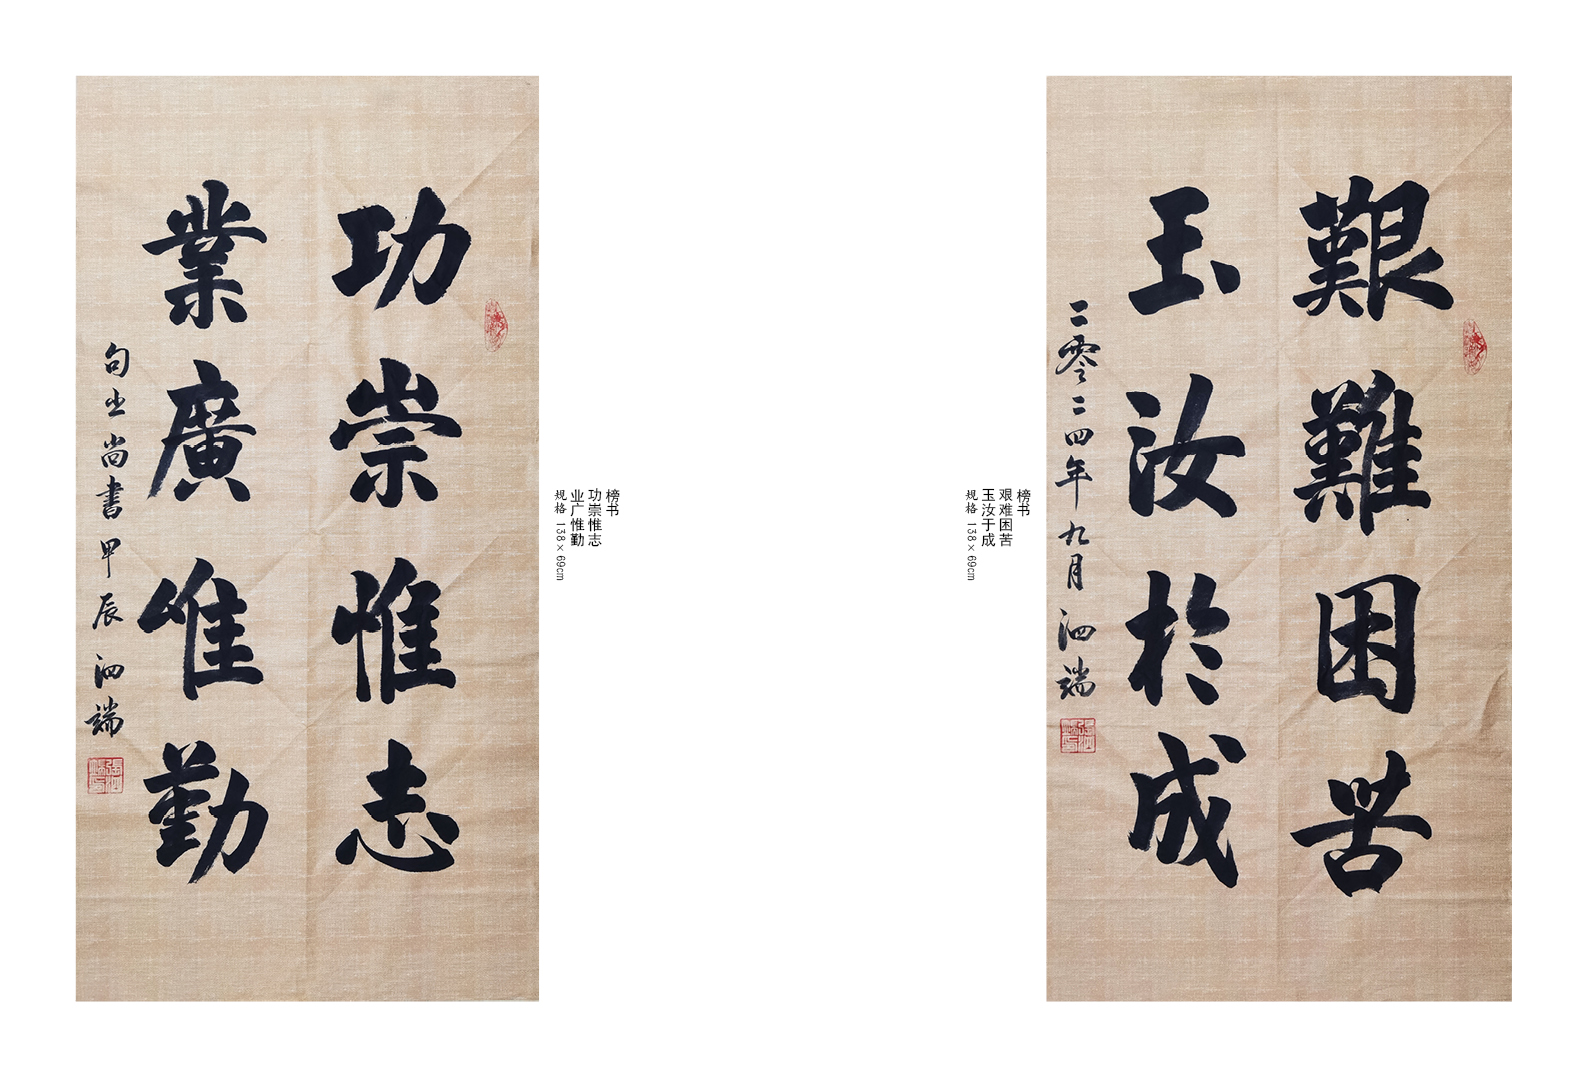 艱難困苦
玉汝於成
二零二四年九月泗端
榜书
艰难困苦
玉汝于成
规格 138×69cm
功崇惟志
業廣惟勤
句出尚書甲辰泗端
榜书
功崇惟志
业广惟勤
规格 138×69cm